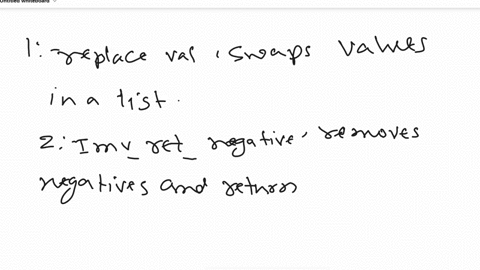 Untitled Whiteboard
1: replace val , swaps values
in a list .
2: Imv_ret_negative, removes
negatives and return